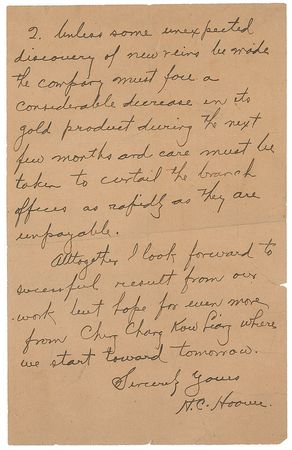 2. Unless some unexpected
discovery of new veins be made
the company must face a
considerable decrease in its
gold product during the next
few months and care must be
taken to curtail the branch
offices as rapidly as they are
unpayable.
Altogether I look forward to
successful result from our
work but hope for even more
from Ching Chang Kow Liang where
we start toward tomorrow.
Sincerely Yours
H.C. Hoover.